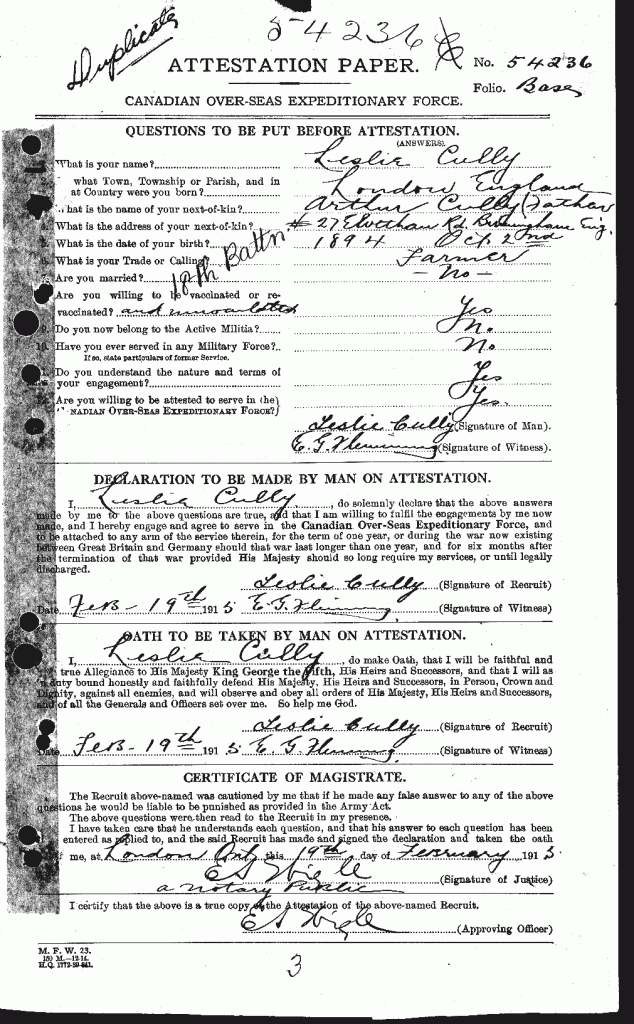 Duplicate
54236
ATTESTATION PAPER.
No. 54236
Folio. Base
CANADIAN OVER-SEAS EXPEDITIONARY FORCE.
QUESTIONS TO BE PUT BEFORE ATTESTATION.
(ANSWERS).
What is your name? Leslie Cully
what Town, Township or Parish, and in
at Country were you born? London England
hat is the name of your next-of-kin? Arthur Cully (Father
What is the address of your next-of-kin? # 27 Rd. Birmingham Eng.
What is the date of your birth? 1894 Oct. 22nd
What is your Trade or Calling? Farmer
18th Battn
Are you married? — No —
Are you willing to be vaccinated or re-
vaccinated? and innoculated Yes
Do you now belong to the Active Militia? No.
Have you ever served in any Military Force? No
If so, state particulars of former Service.
Do you understand the nature and terms of
your engagement? Yes
Are you willing to be attested to serve in the
NADIAN OVER-SEAS EXPEDITIONARY FORCE? Yes.
Leslie Cully (Signature of Man).
E. G. Flemming (Signature of Witness).
DECLARATION TO BE MADE BY MAN ON ATTESTATION.
I, Leslie Cully, do solemnly declare that the above answers
made by me to the above questions are true, and that I am willing to fulfil the engagements by me now
made, and I hereby engage and agree to serve in the Canadian Over-Seas Expeditionary Force, and
to be attached to any arm of the service therein, for the term of one year, or during the war now existing
between Great Britain and Germany should that war last longer than one year, and for six months after
the termination of that war provided His Majesty should so long require my services, or until legally
discharged.
Leslie Cully (Signature of Recruit)
Date Feb - 19th 1915 E. G. Flemming (Signature of Witness)
OATH TO BE TAKEN BY MAN ON ATTESTATION.
I, Leslie Cully, do make Oath, that I will be faithful and
true Allegiance to His Majesty King George the Fifth, His Heirs and Successors, and that I will as
duty bound honestly and faithfully defend His Majesty, His Heirs and Successors, in Person, Crown and
Dignity, against all enemies, and will observe and obey all orders of His Majesty, His Heirs and Successors,
and of all the Generals and Officers set over me. So help me God.
Leslie Cully (Signature of Recruit)
Date Feb - 19th 1915 E. G. Flemming (Signature of Witness)
CERTIFICATE OF MAGISTRATE.
The Recruit above-named was cautioned by me that if he made any false answer to any of the above
questions he would be liable to be punished as provided in the Army Act.
The above questions were then read to the Recruit in my presence.
I have taken care that he understands each question, and that his answer to each question has been
entered as replied to, and the said Recruit has made and signed the declaration and taken the oath
me, at London Ont, this 19th day of February 1915
E S Wigle (Signature of Justice)
a notary Public
I certify that the above is a true copy of the Attestation of the above-named Recruit.
E S Wigle (Approving Officer)
M. F. W. 23.
150 M.—12-14.
H.Q. 1772-39-841.
3